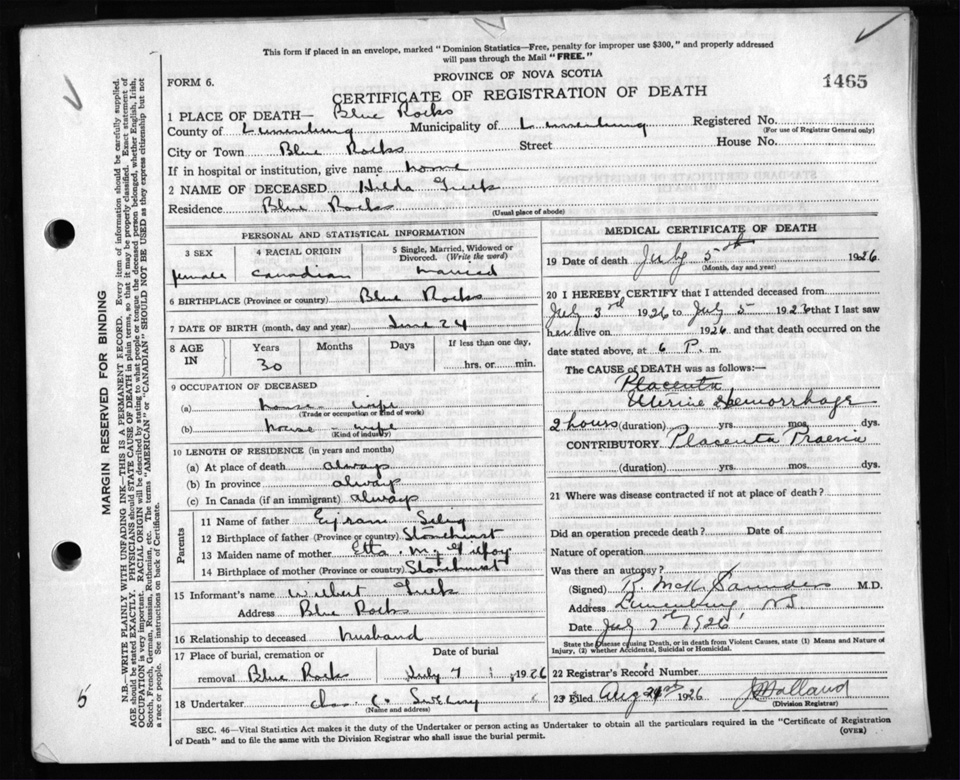 This form if placed in an envelope, marked "Dominion Statistics—Free, penalty for improper use $300," and properly addressed
will pass through the Mail "FREE."
PROVINCE OF NOVA SCOTIA
FORM 6.
1465
CERTIFICATE OF REGISTRATION OF DEATH
1 PLACE OF DEATH— Blue Rocks
County of Lunenburg Municipality of Lunenburg Registered No.
(For use of Registrar General only)
City or Town Blue Rocks Street House No.
If in hospital or institution, give name home
2 NAME OF DECEASED Hilda
Residence Blue Rocks
(Usual place of abode)
PERSONAL AND STATISTICAL INFORMATION
3 SEX 4 RACIAL ORIGIN 5 Single, Married, Widowed or
Divorced. (Write the word)
female Canadian married
6 BIRTHPLACE (Province or country) Blue Rocks
7 DATE OF BIRTH (month, day and year) June 24
8 AGE IN Years Months Days If less than one day,
30 hrs. or min.
9 OCCUPATION OF DECEASED
(a) house wife
(Trade or occupation or kind of work)
(b) house-wife
(Kind of industry)
10 LENGTH OF RESIDENCE (in years and months)
(a) At place of death always
(b) In province always
(c) In Canada (if an immigrant) always
Parents
11 Name of father
12 Birthplace of father (Province or country) Stonehurst
13 Maiden name of mother Etta
14 Birthplace of mother (Province or country) Stonehurst
15 Informant's name Wilbert
Address Blue Rocks
16 Relationship to deceased husband
17 Place of burial, cremation or Date of burial
removal Blue Rocks July 7 1926
18 Undertaker Chas. C.
(Name and address)
MEDICAL CERTIFICATE OF DEATH
19 Date of death July 5th 1926.
(Month, day and year)
20 I HEREBY CERTIFY that I attended deceased from
July 3rd 1926 to July 5 1926 that I last saw
her alive on 1926 and that death occurred on the
date stated above, at 6 P. m.
The CAUSE of DEATH was as follows:—
Placenta
Uterine Haemorrhage
2 hours (duration) yrs. mos. dys.
CONTRIBUTORY. Placenta Praevia
(duration) yrs. mos. dys.
21 Where was disease contracted if not at place of death?
Did an operation precede death? Date of
Nature of operation
Was there an autopsy?
(Signed) R. McK. Saunders M.D.
Address Lunenburg NS
Date July 7th 1926
State the Disease causing Death, or in death from Violent Causes, state (1) Means and Nature of
Injury, (2) whether Accidental, Suicidal or Homicidal.
22 Registrar's Record Number
23 Filed Aug 1926 Holland
(Division Registrar)
SEC. 46—Vital Statistics Act makes it the duty of the Undertaker or person acting as Undertaker to obtain all the particulars required in the "Certificate of Registration
of Death" and to file the same with the Division Registrar who shall issue the burial permit.
(OVER)
MARGIN RESERVED FOR BINDING
N.B.—WRITE PLAINLY WITH UNFADING INK—THIS IS A PERMANENT RECORD. Every item of information should be carefully supplied.
AGE should be stated EXACTLY. PHYSICIANS should STATE CAUSE OF DEATH in plain terms, so that it may be properly classified. Exact statement of
OCCUPATION is very important. RACIAL ORIGIN will be described by stating to what people or tongue the deceased person belonged, whether English, Irish,
Scotch, French, German, Russian, Ruthenian, etc. The terms "AMERICAN" or "CANADIAN" SHOULD NOT BE USED as they express citizenship but not
a race or people. See instructions on back of Certificate.
5